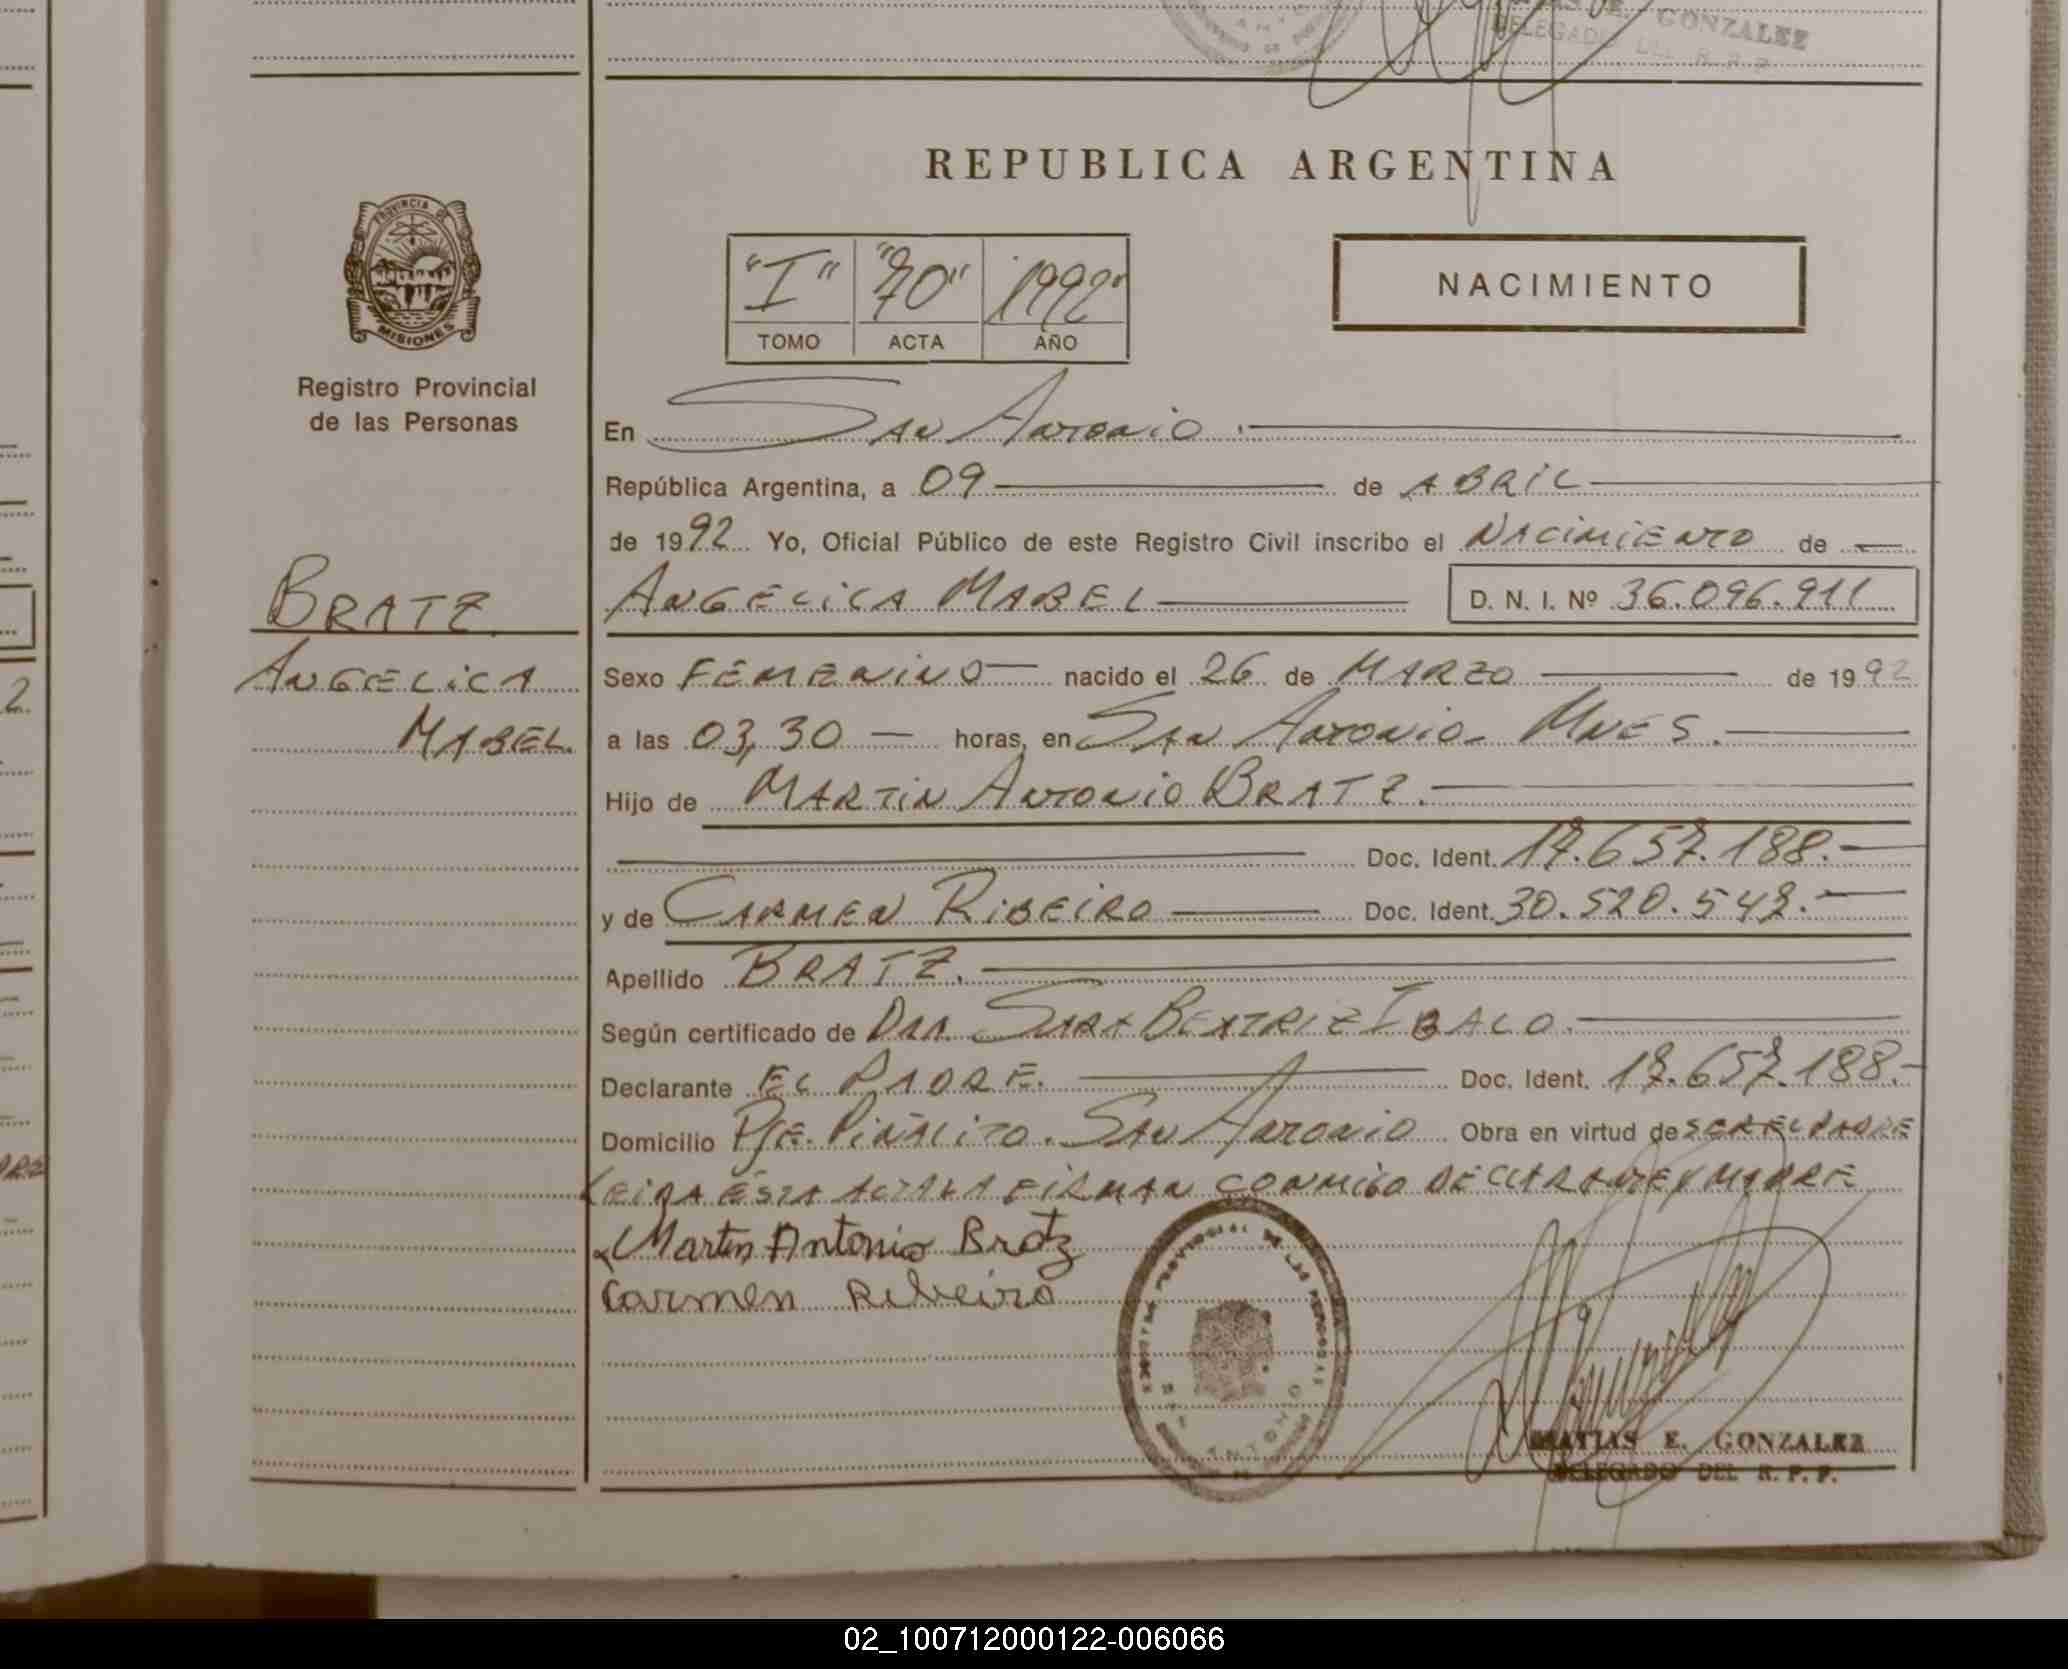 GONZALEZ
DELEGADO DEL R. P. P.
REPUBLICA ARGENTINA
PROVINCIA DE
MISIONES
Registro Provincial
de las Personas
"I" "70" "1992"
TOMO ACTA AÑO
NACIMIENTO
En San Antonio.
República Argentina, a 09 de ABRIL
de 1992 Yo, Oficial Público de este Registro Civil inscribo el NACIMIENTO de
BRATZ
ANGELICA
MABEL.
ANGELICA MABEL D. N. I. Nº 36.096.911
Sexo FEMENINO nacido el 26 de MARZO de 1992
a las 03,30 horas, en SAN ANTONIO- MNES.
Hijo de MARTIN ANTONIO BRATZ.
Doc. Ident. 17.657.188.-
y de CARMEN RIBEIRO Doc. Ident. 30.520.547.-
Apellido BRATZ.
Según certificado de DRA. SARA BEATRIZ IBALO.
Declarante EL PADRE. Doc. Ident. 17.657.188.-
Domicilio PJE. PIÑALITO. SAN ANTONIO Obra en virtud de SER EL PADRE
LEIDA ESTA ACTA LA FIRMAN CONMIGO DECLARANTE Y MADRE
Martin Antonio Bratz
Carmen Ribeiro
MATIAS E. GONZALEZ
DELEGADO DEL R. P. P.
02_100712000122-006066